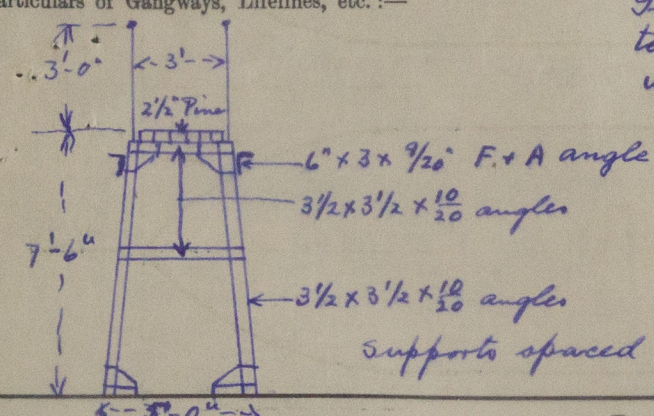 articulars of Gangways, Lifelines, etc. :—
3'-0"
3'
2½" Pine
6" × 3 × 9/20" F. & A angle
3½ × 3½ × 10/20 angles
7'-6"
3½ × 3½ × 10/20 angles
supports spaced